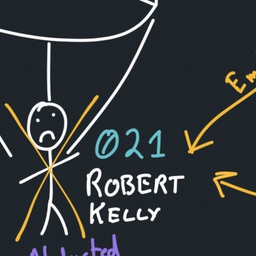 021
ROBERT
KELLY
Abducted